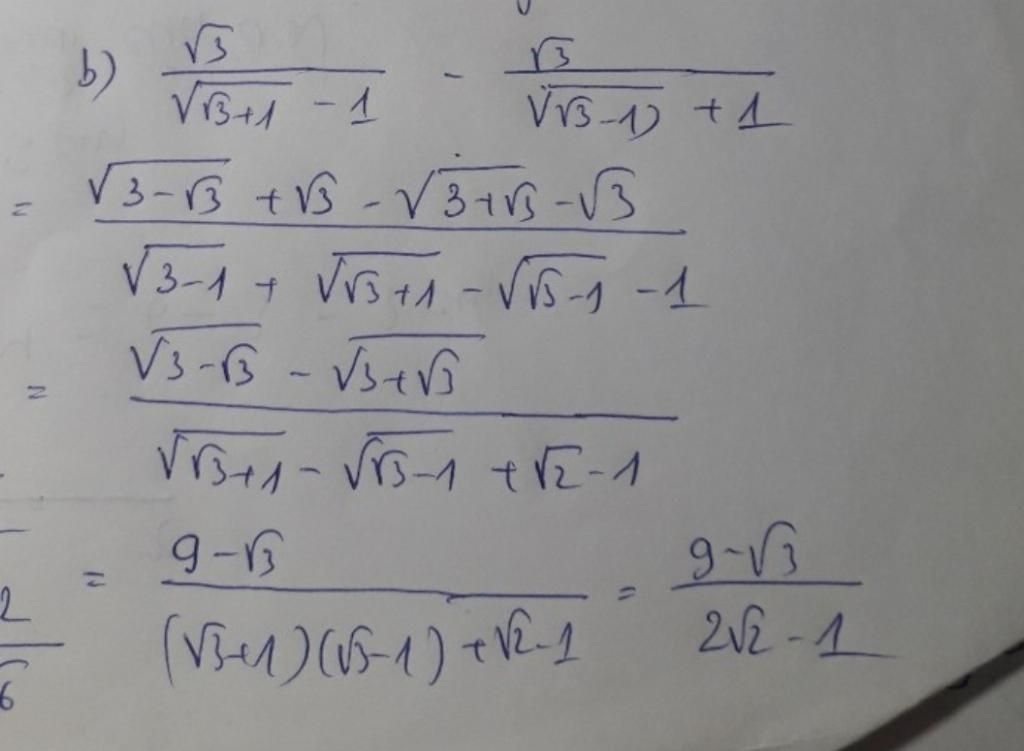 b) √3/(√(√3+1) - 1) - √3/(√(√3-1)) + 1)
= (√(3-√3) + √3 - √(3+√3) - √3)/(√(3-1) + √(√3+1) - √(√3-1) - 1)
= (√(3-√3) - √(3+√3))/(√(√3+1) - √(√3-1) + √2 - 1)
= (9-√3)/((√3+1)(√3-1) + √2-1) = (9-√3)/(2√2 - 1)
2
6